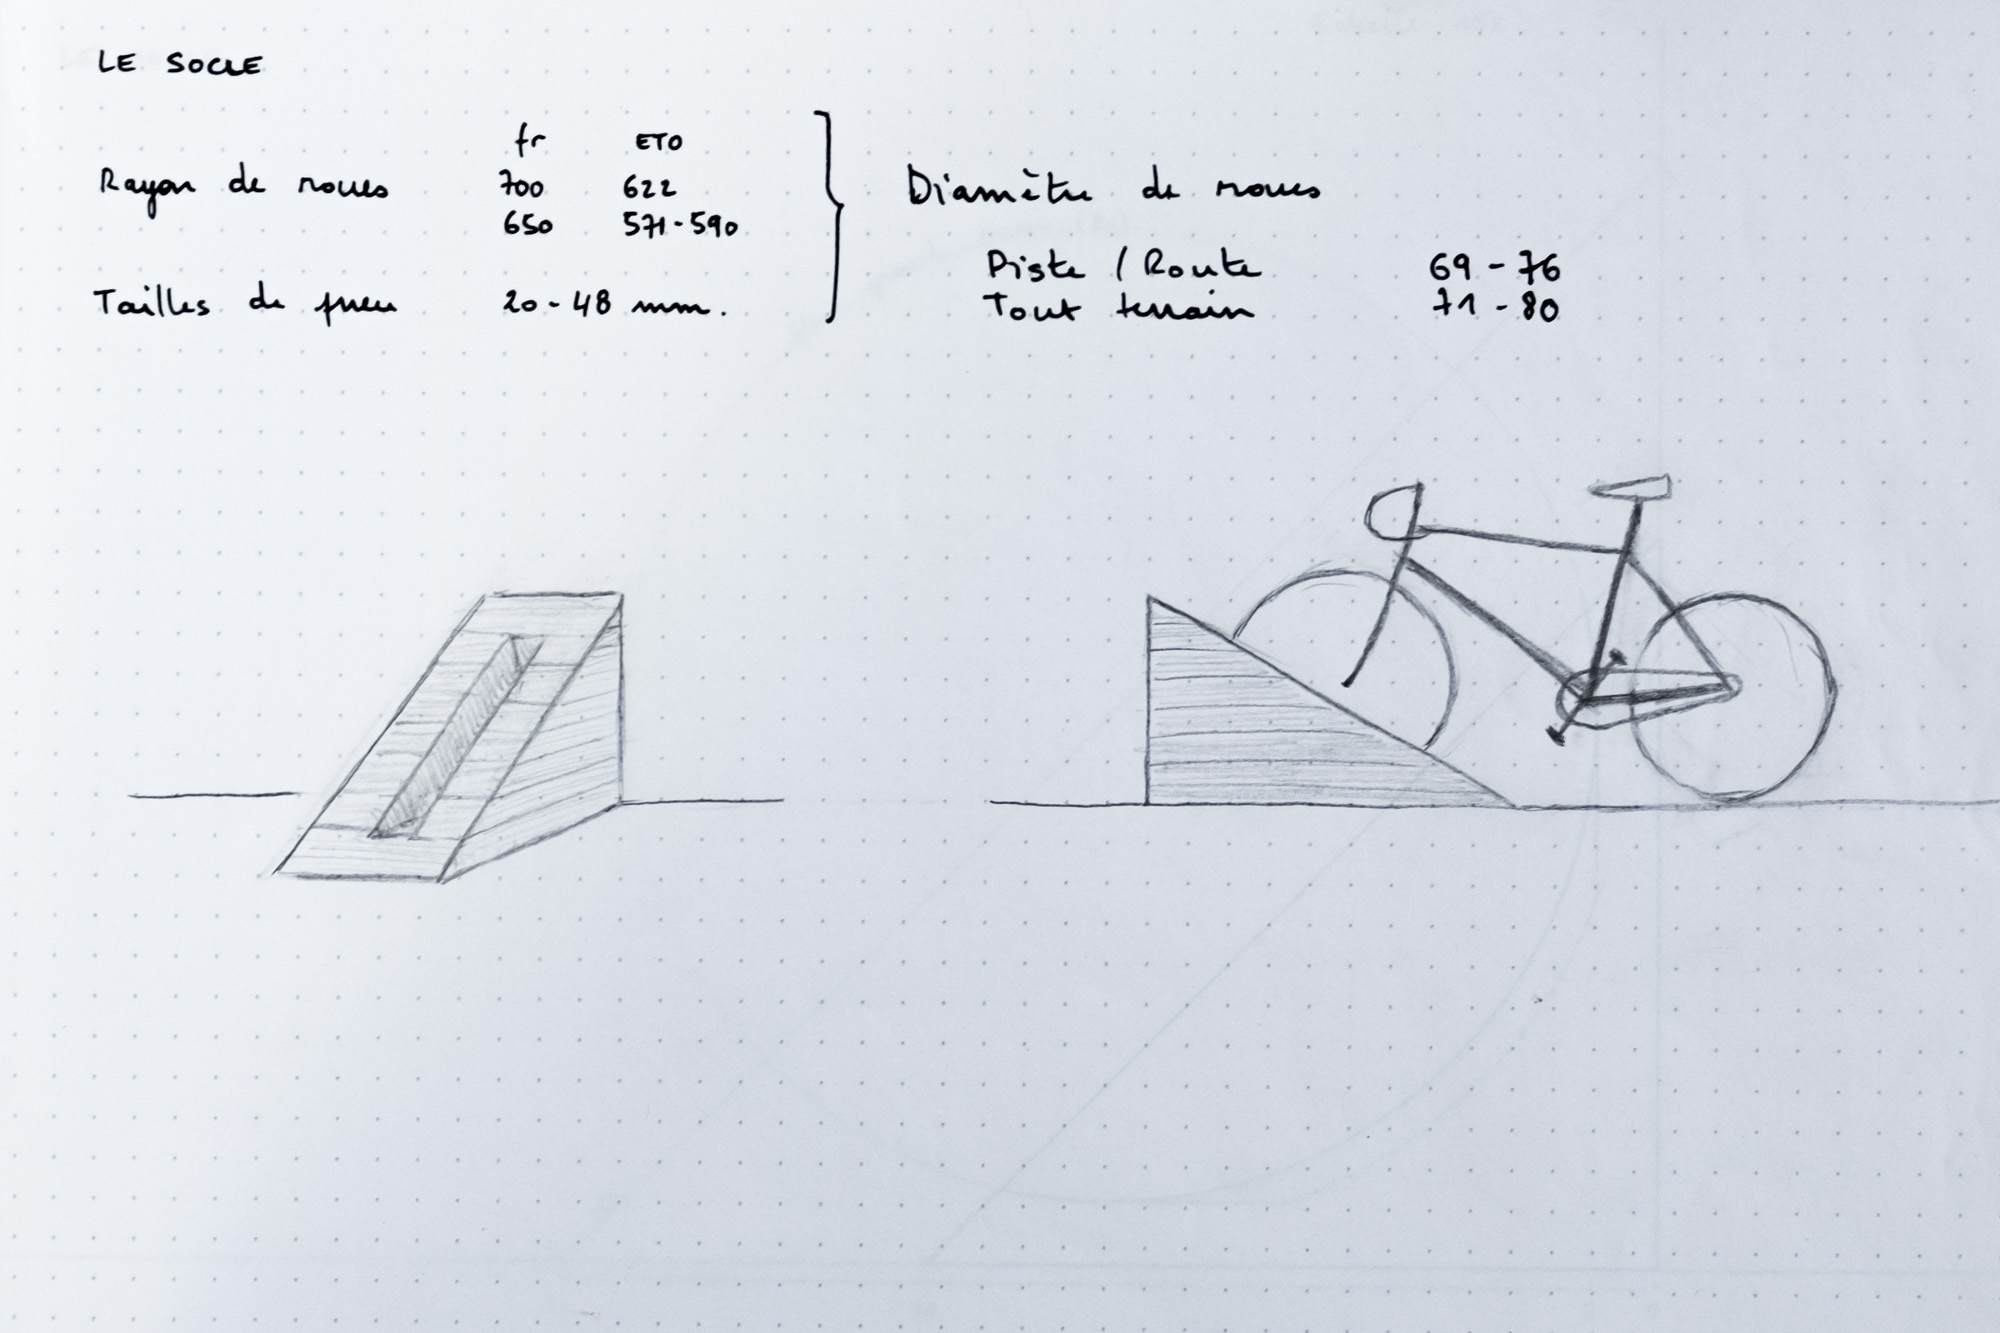 LE SOCLE
fr ETO
Rayon de roues 700 622
650 571-590
Tailles de pneu 20-48 mm.
Diamètre de roues
Piste / Route 69-76
Tout terrain 71-80